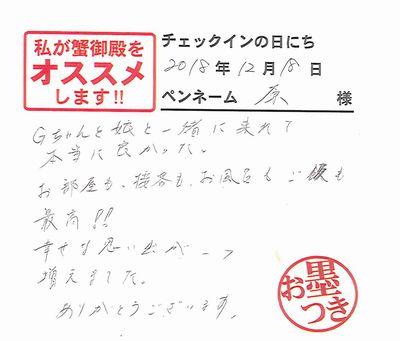 私が蟹御殿を
オススメ
します!!
チェックインの日にち
2018年12月18日
ペンネーム 原 様
Gちゃんと娘と一緒に来れて
本当に良かった。
お部屋も、接客も、お風呂もご飯も
最高!!
幸せな思い出が一つ
増えました。
ありがとうございます。
お墨つき